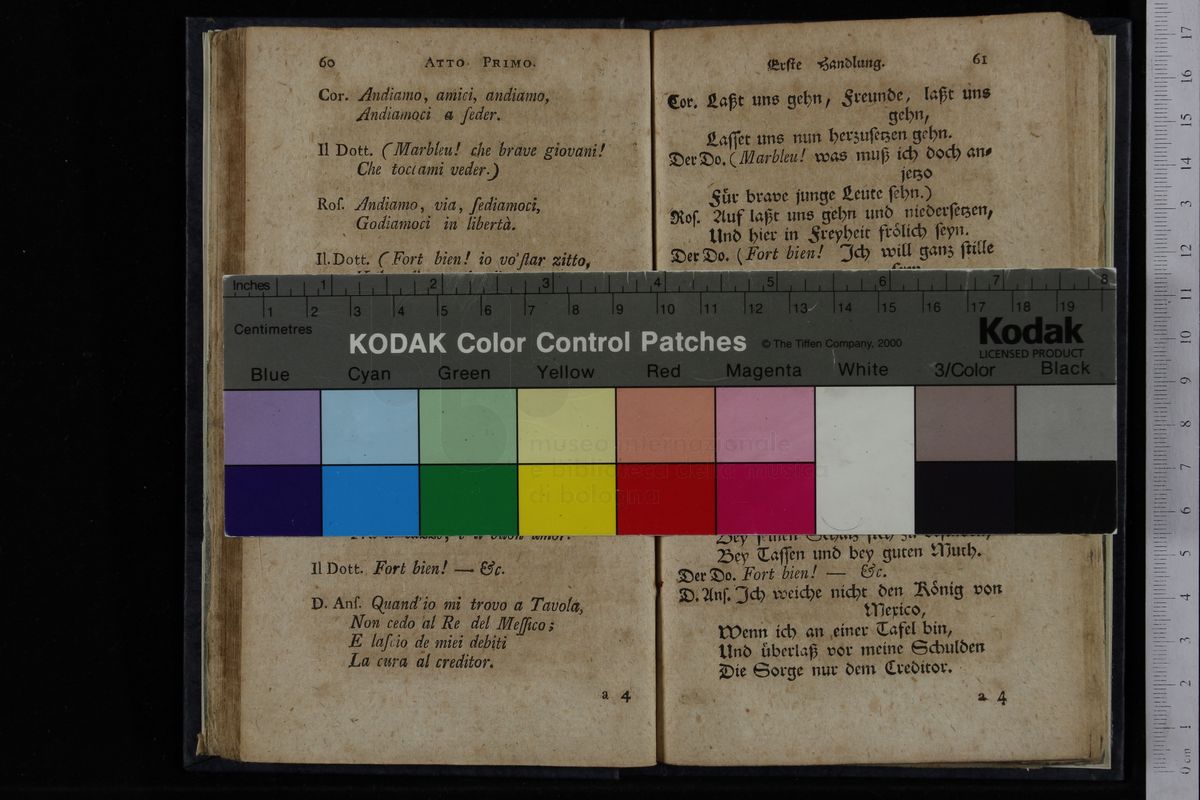 60 ATTO PRIMO.
Cor. Andiamo, amici, andiamo,
Andiamoci a ſeder.
Il Dott. (Marbleu! che brave giovani!
Che toccami veder.)
Roſ. Andiamo, via, ſediamoci,
Godiamoci in libertà.
Il. Dott. (Fort bien! io vo'ſtar zitto,
Il Dott. Fort bien! — &c.
D. Anſ. Quand'io mi trovo a Tavola,
Non cedo al Re del Meſſico;
E laſcio de miei debiti
La cura al creditor.
a 4
Erſte Handlung. 61
Cor. Laßt uns gehn, Freunde, laßt uns
gehn,
Laſſet uns nun herzuſetzen gehn.
Der Do. (Marbleu! was muß ich doch an⸗
jetzo
Für brave junge Leute ſehn.)
Roſ. Auf laßt uns gehn und niederſetzen,
Und hier in Freyheit frölich ſeyn.
Der Do. (Fort bien! Ich will ganz ſtille
Bey Taſſen und bey guten Muth.
Der Do. Fort bien! — &c.
D. Anſ. Ich weiche nicht den König von
Mexico,
Wenn ich an einer Tafel bin,
Und überlaß vor meine Schulden
Die Sorge nur dem Creditor.
a 4
Inches 1 2 3 4 5 6 7 8
1 2 3 4 5 6 7 8 9 10 11 12 13 14 15 16 17 18 19
Centimetres
KODAK Color Control Patches © The Tiffen Company, 2000
Kodak
LICENSED PRODUCT
Blue Cyan Green Yellow Red Magenta White 3/Color Black
museo internazionale
e biblioteca della musica
di bologna
17
16
15
14
13
12
11
10
9
8
7
6
5
4
3
2
1
0 cm